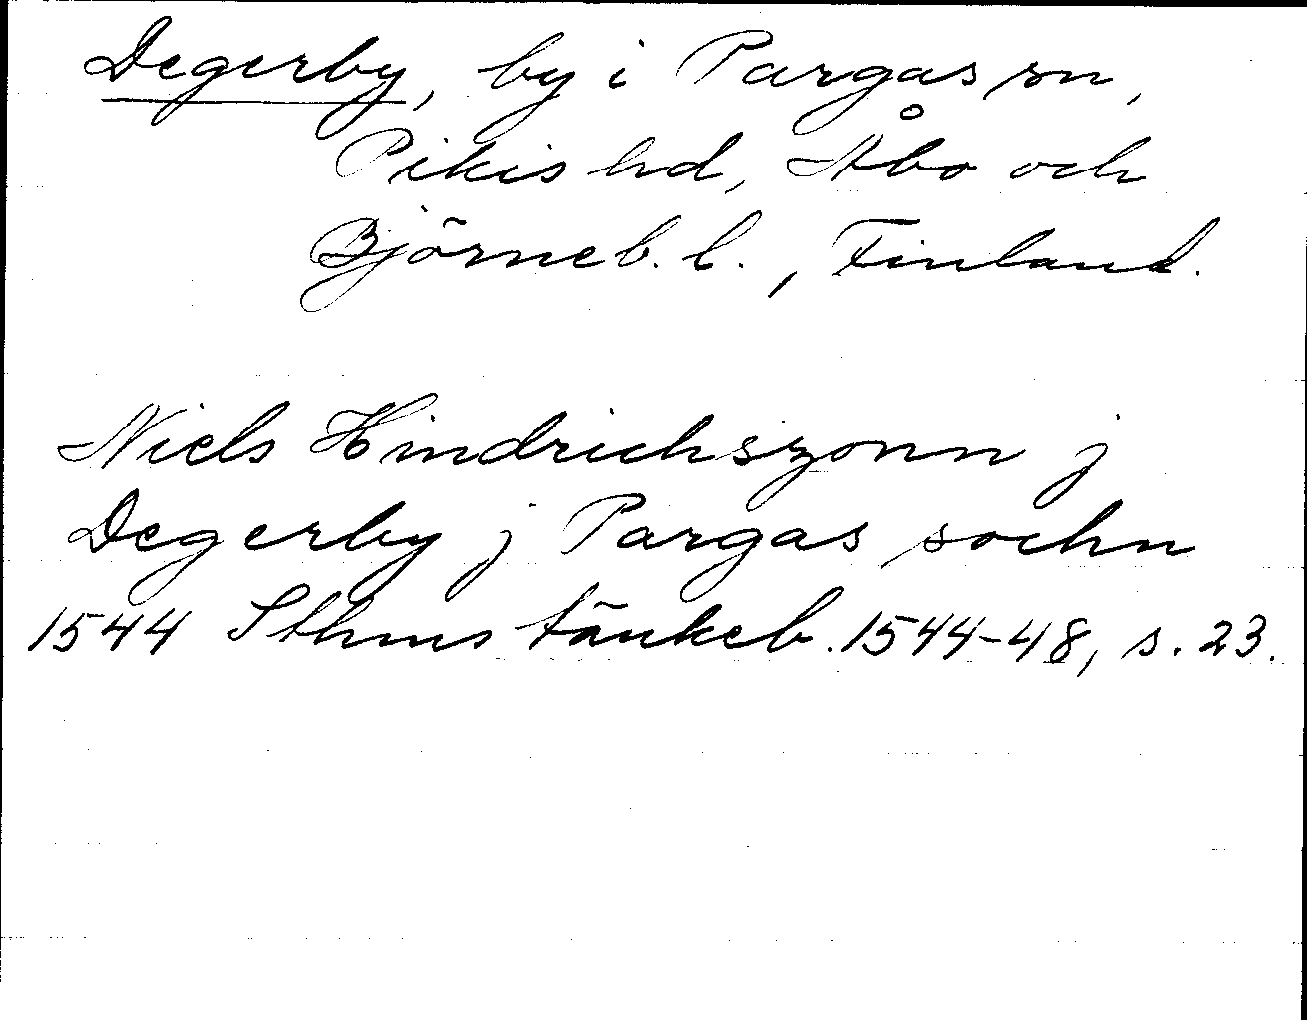 Degerby, by i Pargas sn,
Pikis hd, Åbo och
Björneb. l., Finland.
Niels Hindrichszonn j
Degerby j Pargas sochn
1544 Sthms tänkeb. 1544-48, s. 23.